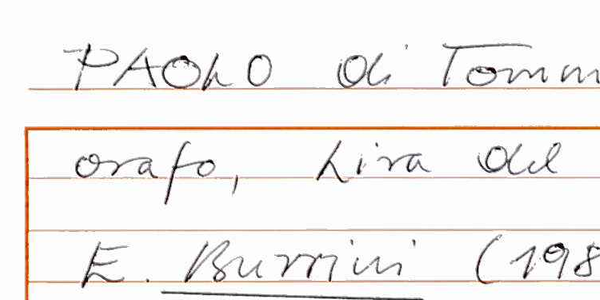 PAOLO di Tomm
orafo, Lira del
E. Burrini (198